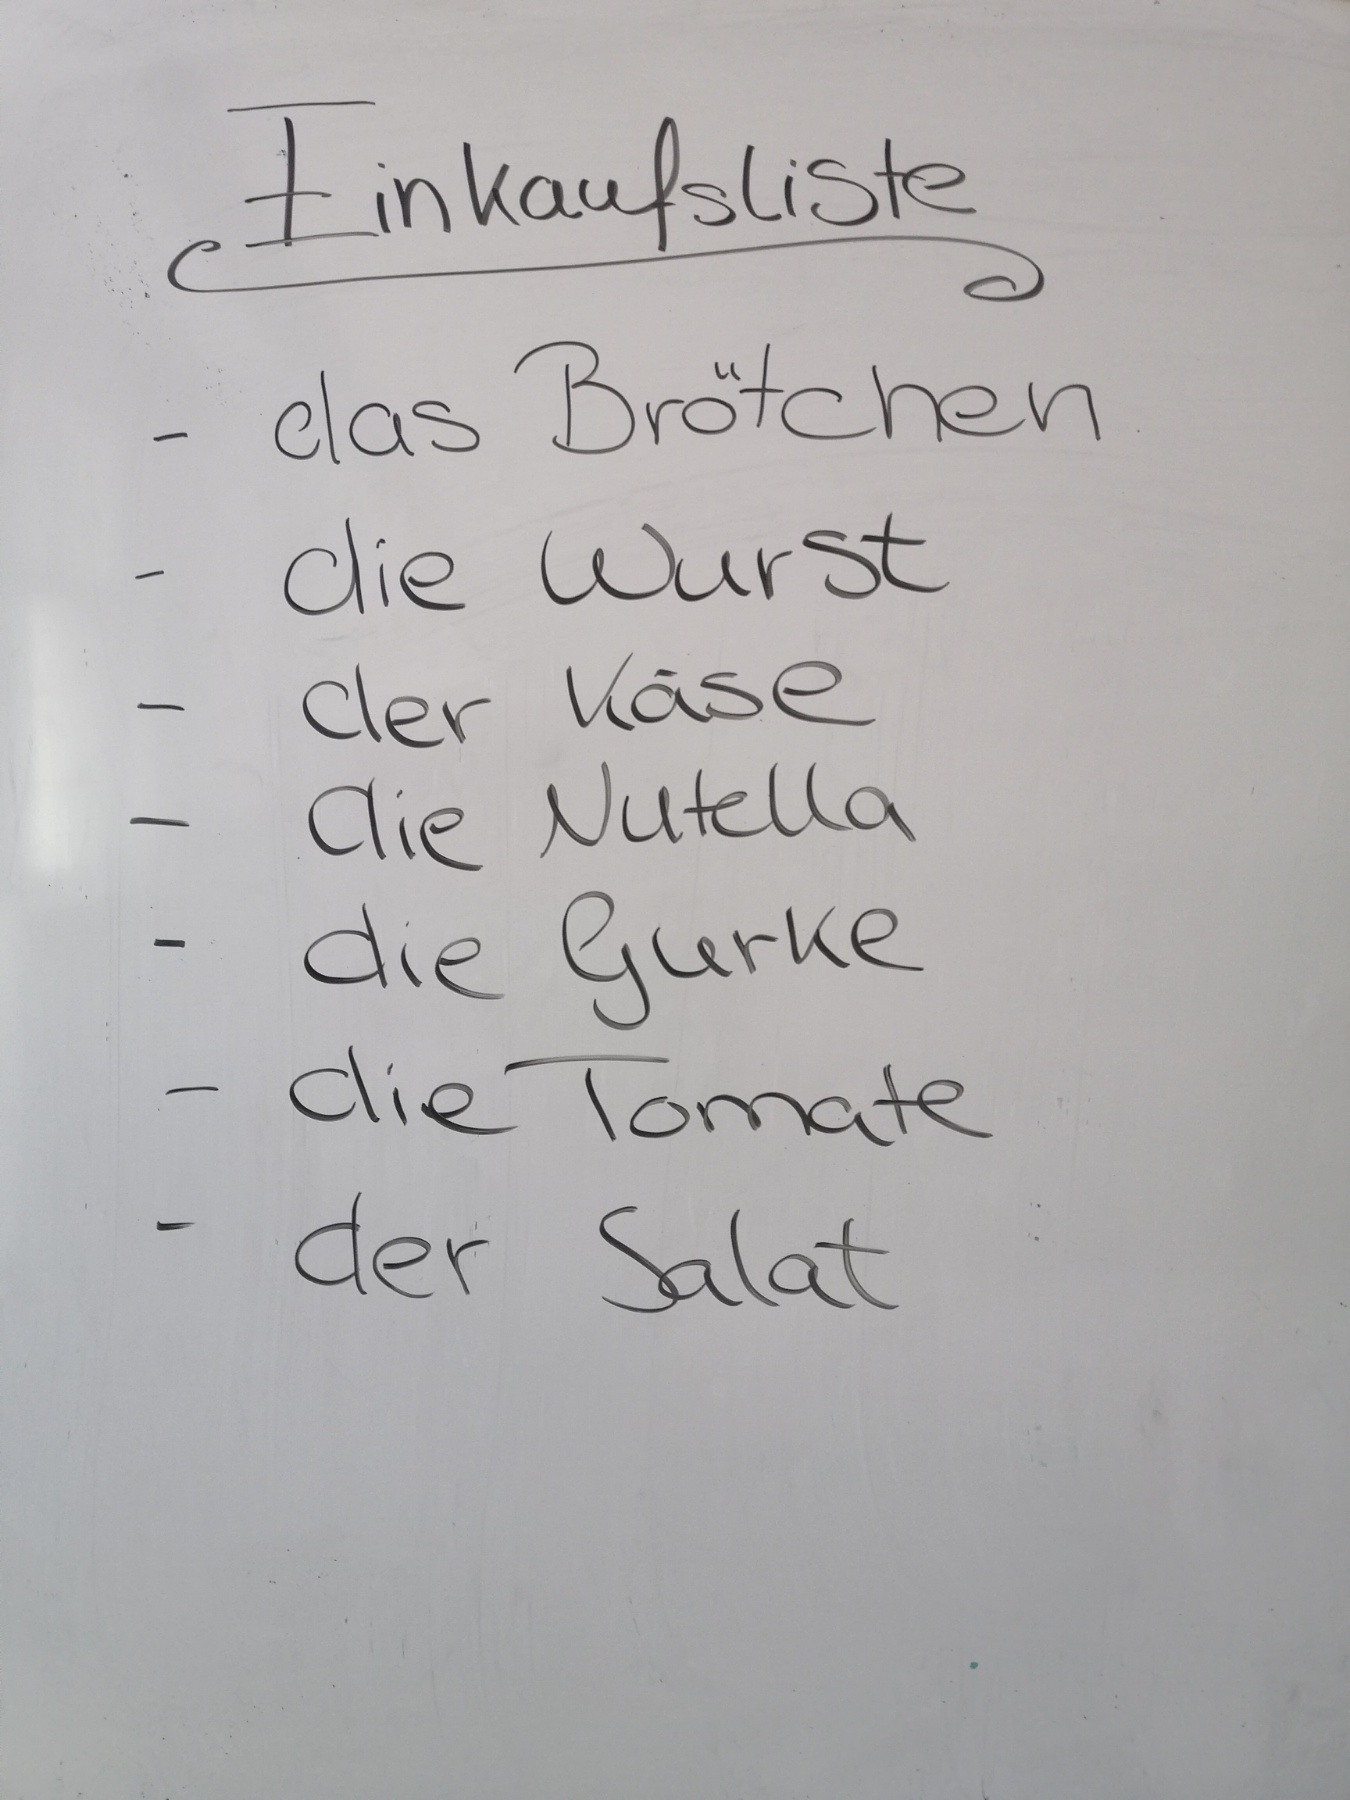 Einkaufsliste
- das Brötchen
- die Wurst
- der Käse
- die Nutella
- die Gurke
- die Tomate
- der Salat